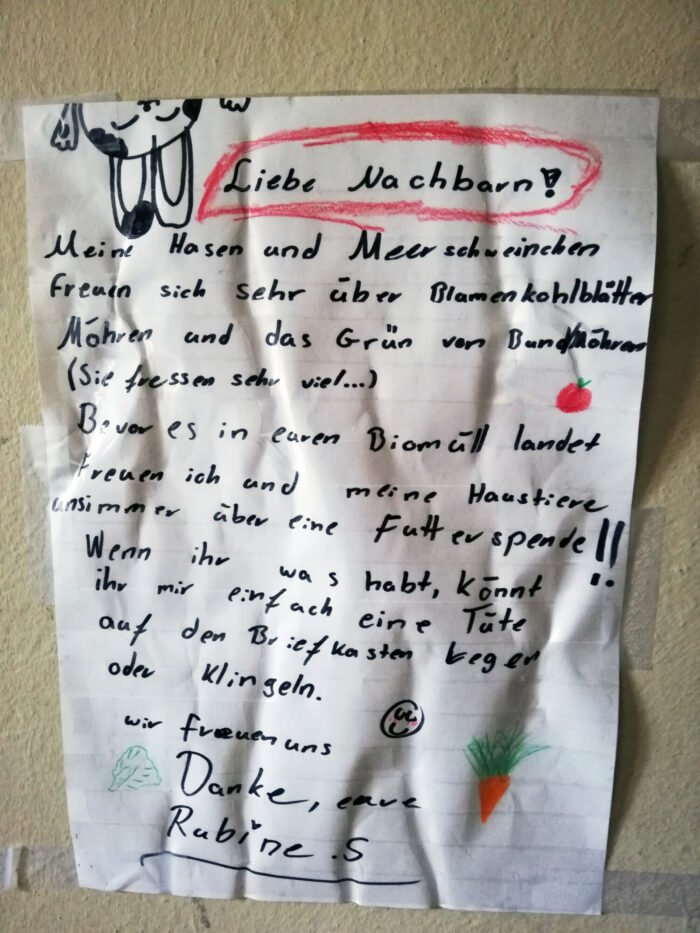 Liebe Nachbarn!
Meine Hasen und Meerschweinchen
freuen sich sehr über Blamenkohlblätter
Möhren und das Grün von Bundmöhren
(Sie fressen sehr viel...)
Bevor es in euren Biomüll landet
freuen ich und meine Haustiere
unsimmer über eine Futterspende!!
Wenn ihr was habt, könnt
ihr mir einfach eine Tüte
auf den Briefkasten legen
oder Klingeln.
wir freuen uns
Danke, eure
Rubine.S